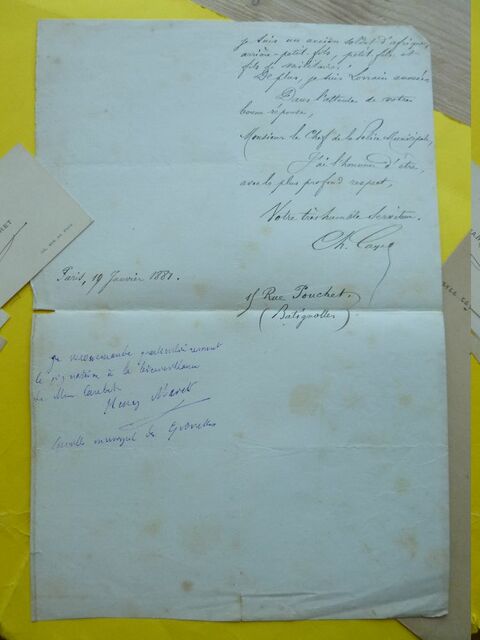 je suis un ancien soldat d'afrique,
arrière-petit fils, petit fils et
fils de militaire;
De plus, je suis Lorrain annexé.
Dans l'attente de votre
bonne réponse,
Monsieur le Chef de la Police Municipale,
J'ai l'honneur d'être,
avec le plus profond respect,
Votre très humble Serviteur.
Ch.
Paris, 19 Janvier 1881.
15 Rue Pouchet.
(Batignolles)
Je recommande particulièrement
le signataire à la bienveillance
de Mon
Henry Maret
Conseiller municipal des Epinettes